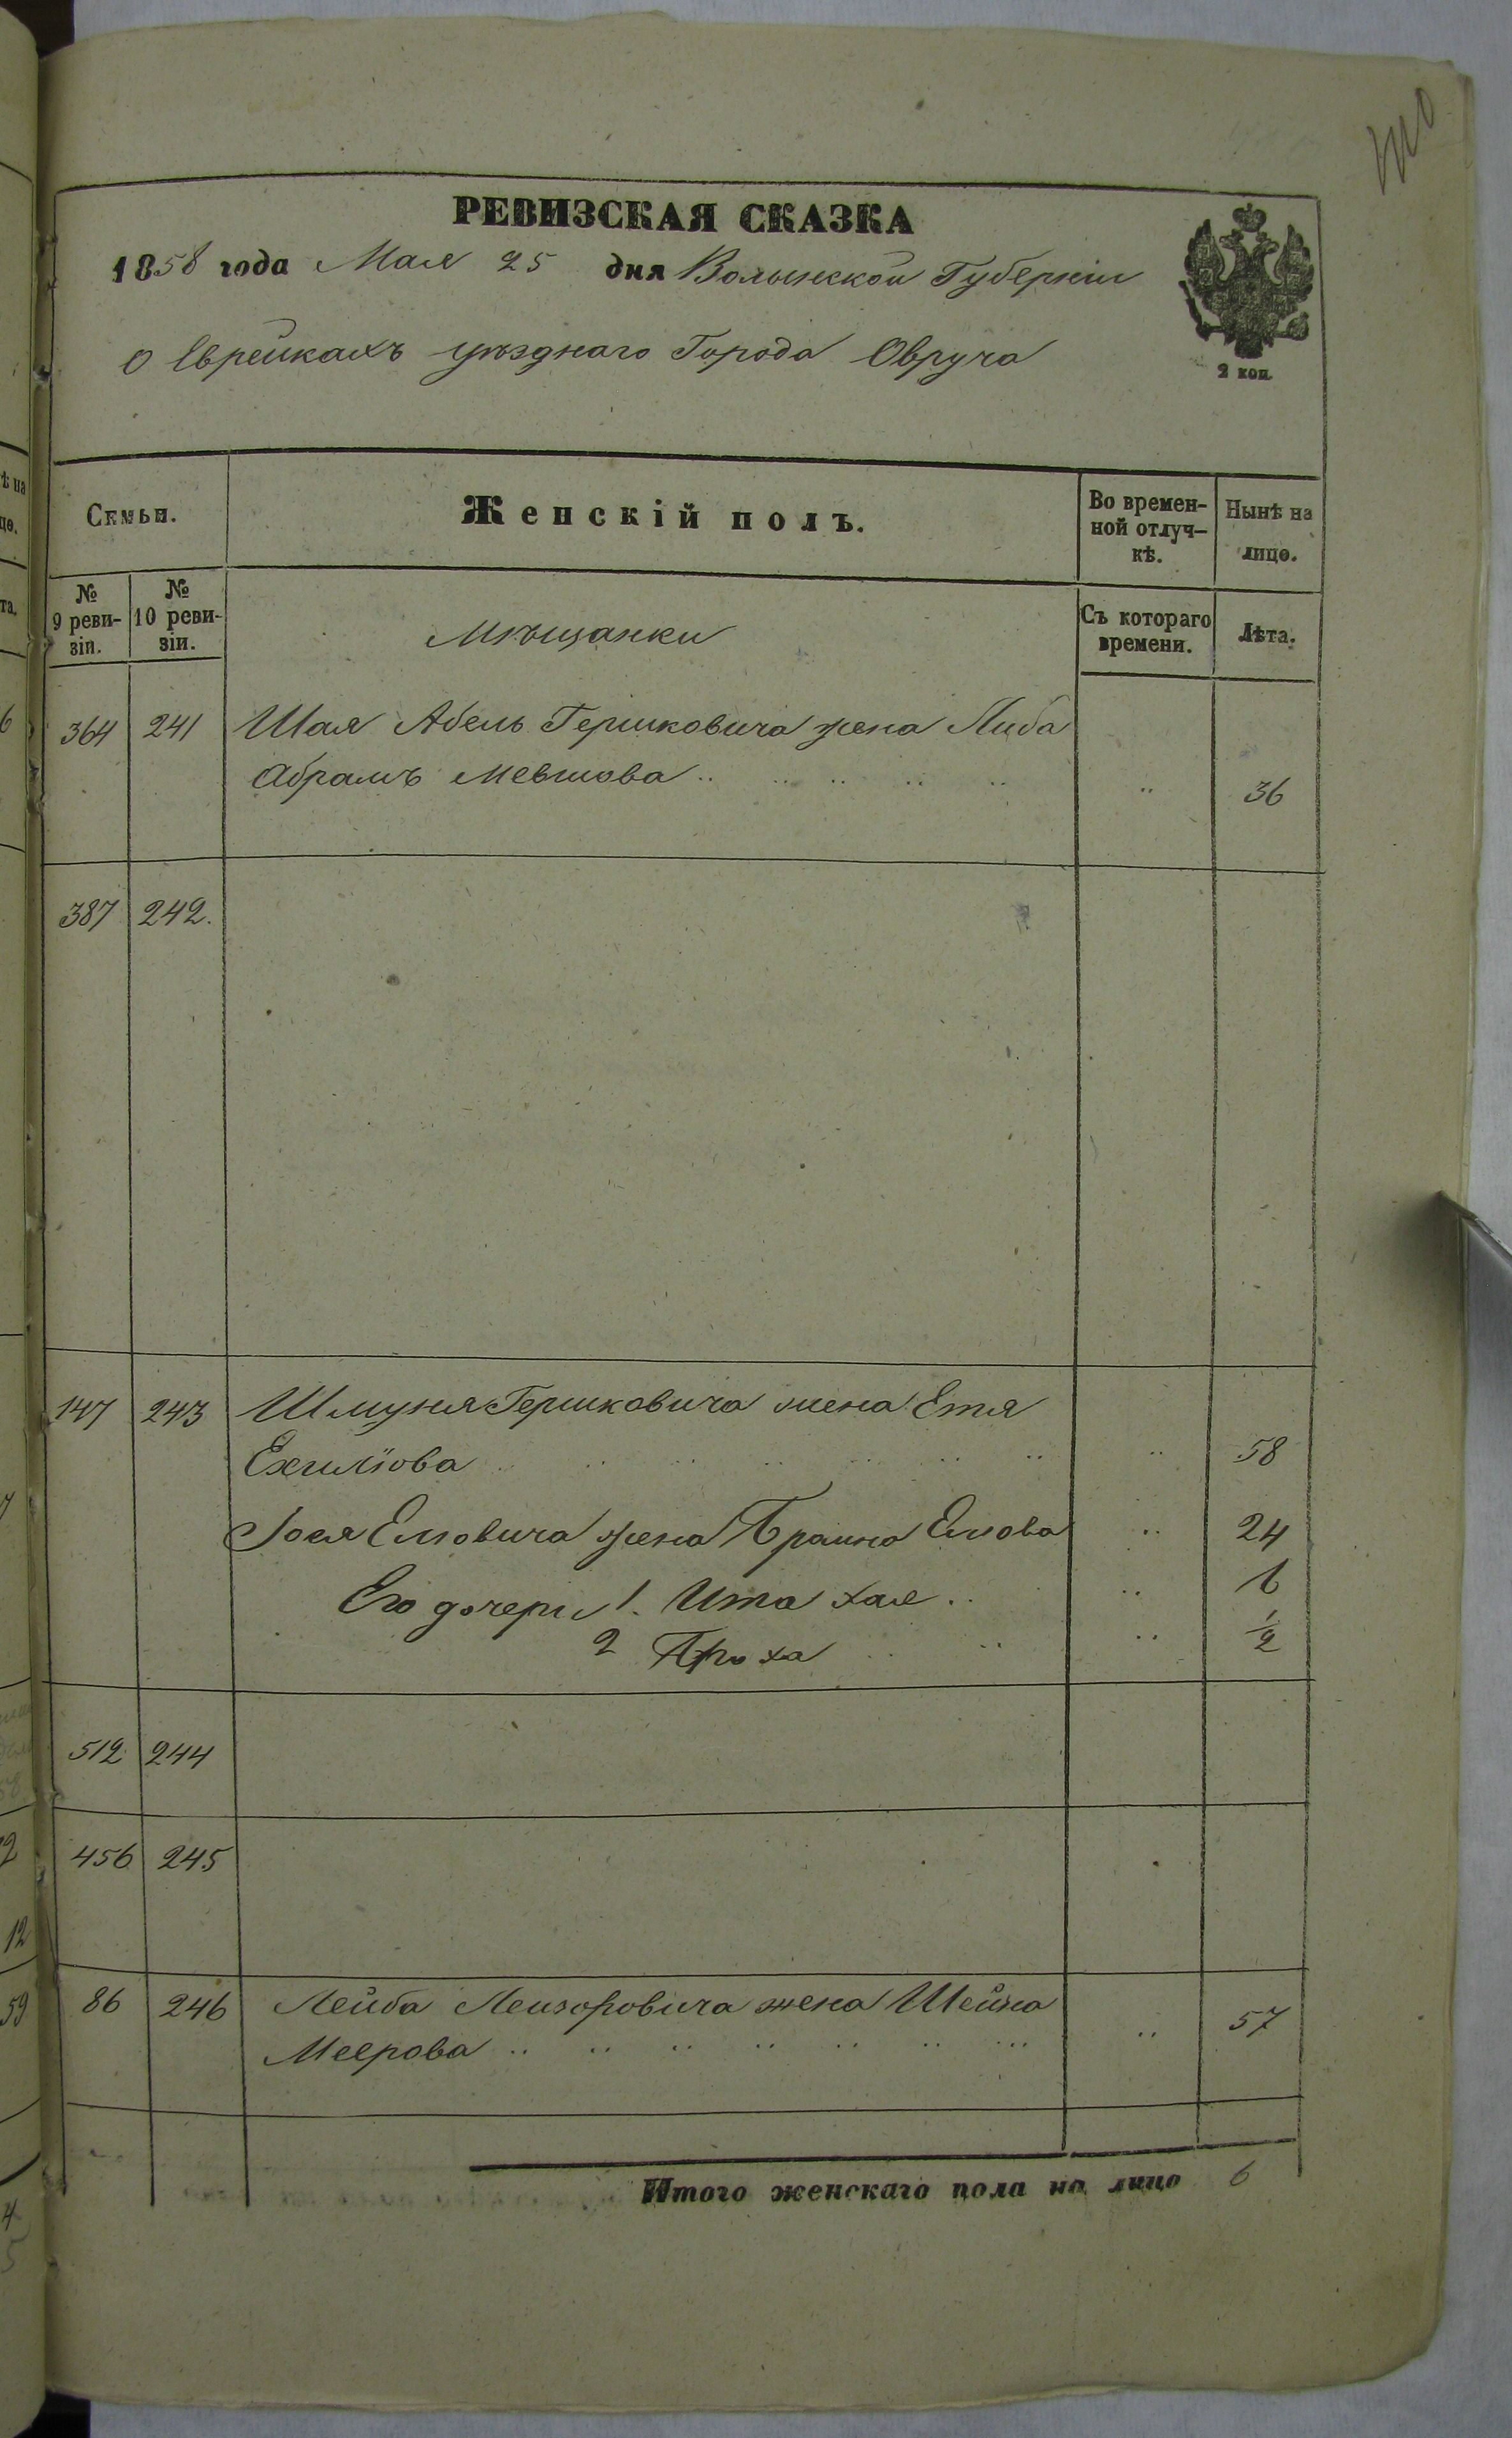 РЕВИЗСКАЯ СКАЗКА
1858 года Мая 25 дня Волынской Губерніи
о Еврейкахъ уѣзднаго Города Овруча
2 коп.
Семьи.
Женскій полъ.
Во времен-
ной отлуч-
кѣ.
Нынѣ на
лицо.
№
9 реви-
зіи.
№
10 реви-
зіи.
Мѣщанки
Съ котораго
времени.
Лѣта.
364 241 Шая Абель Гершковича жена Либа
Абрамъ Мевшова .. .. .. .. .. .. 36
387 242.
147 243 Шмуня Гершковича жена Етя
Ехилiова .. .. .. .. .. .. .. 58
Іося Елiовича жена Браина Елiова .. 24
Его дочери 1. Ита Хая .. .. 6
2 Броха .. .. .. 1/2
512 244
456 245
86 246 Лейба Лейзоровича жена Шейна
Меерова .. .. .. .. .. .. ... .. 57
Итого женскаго пола на лицо 6